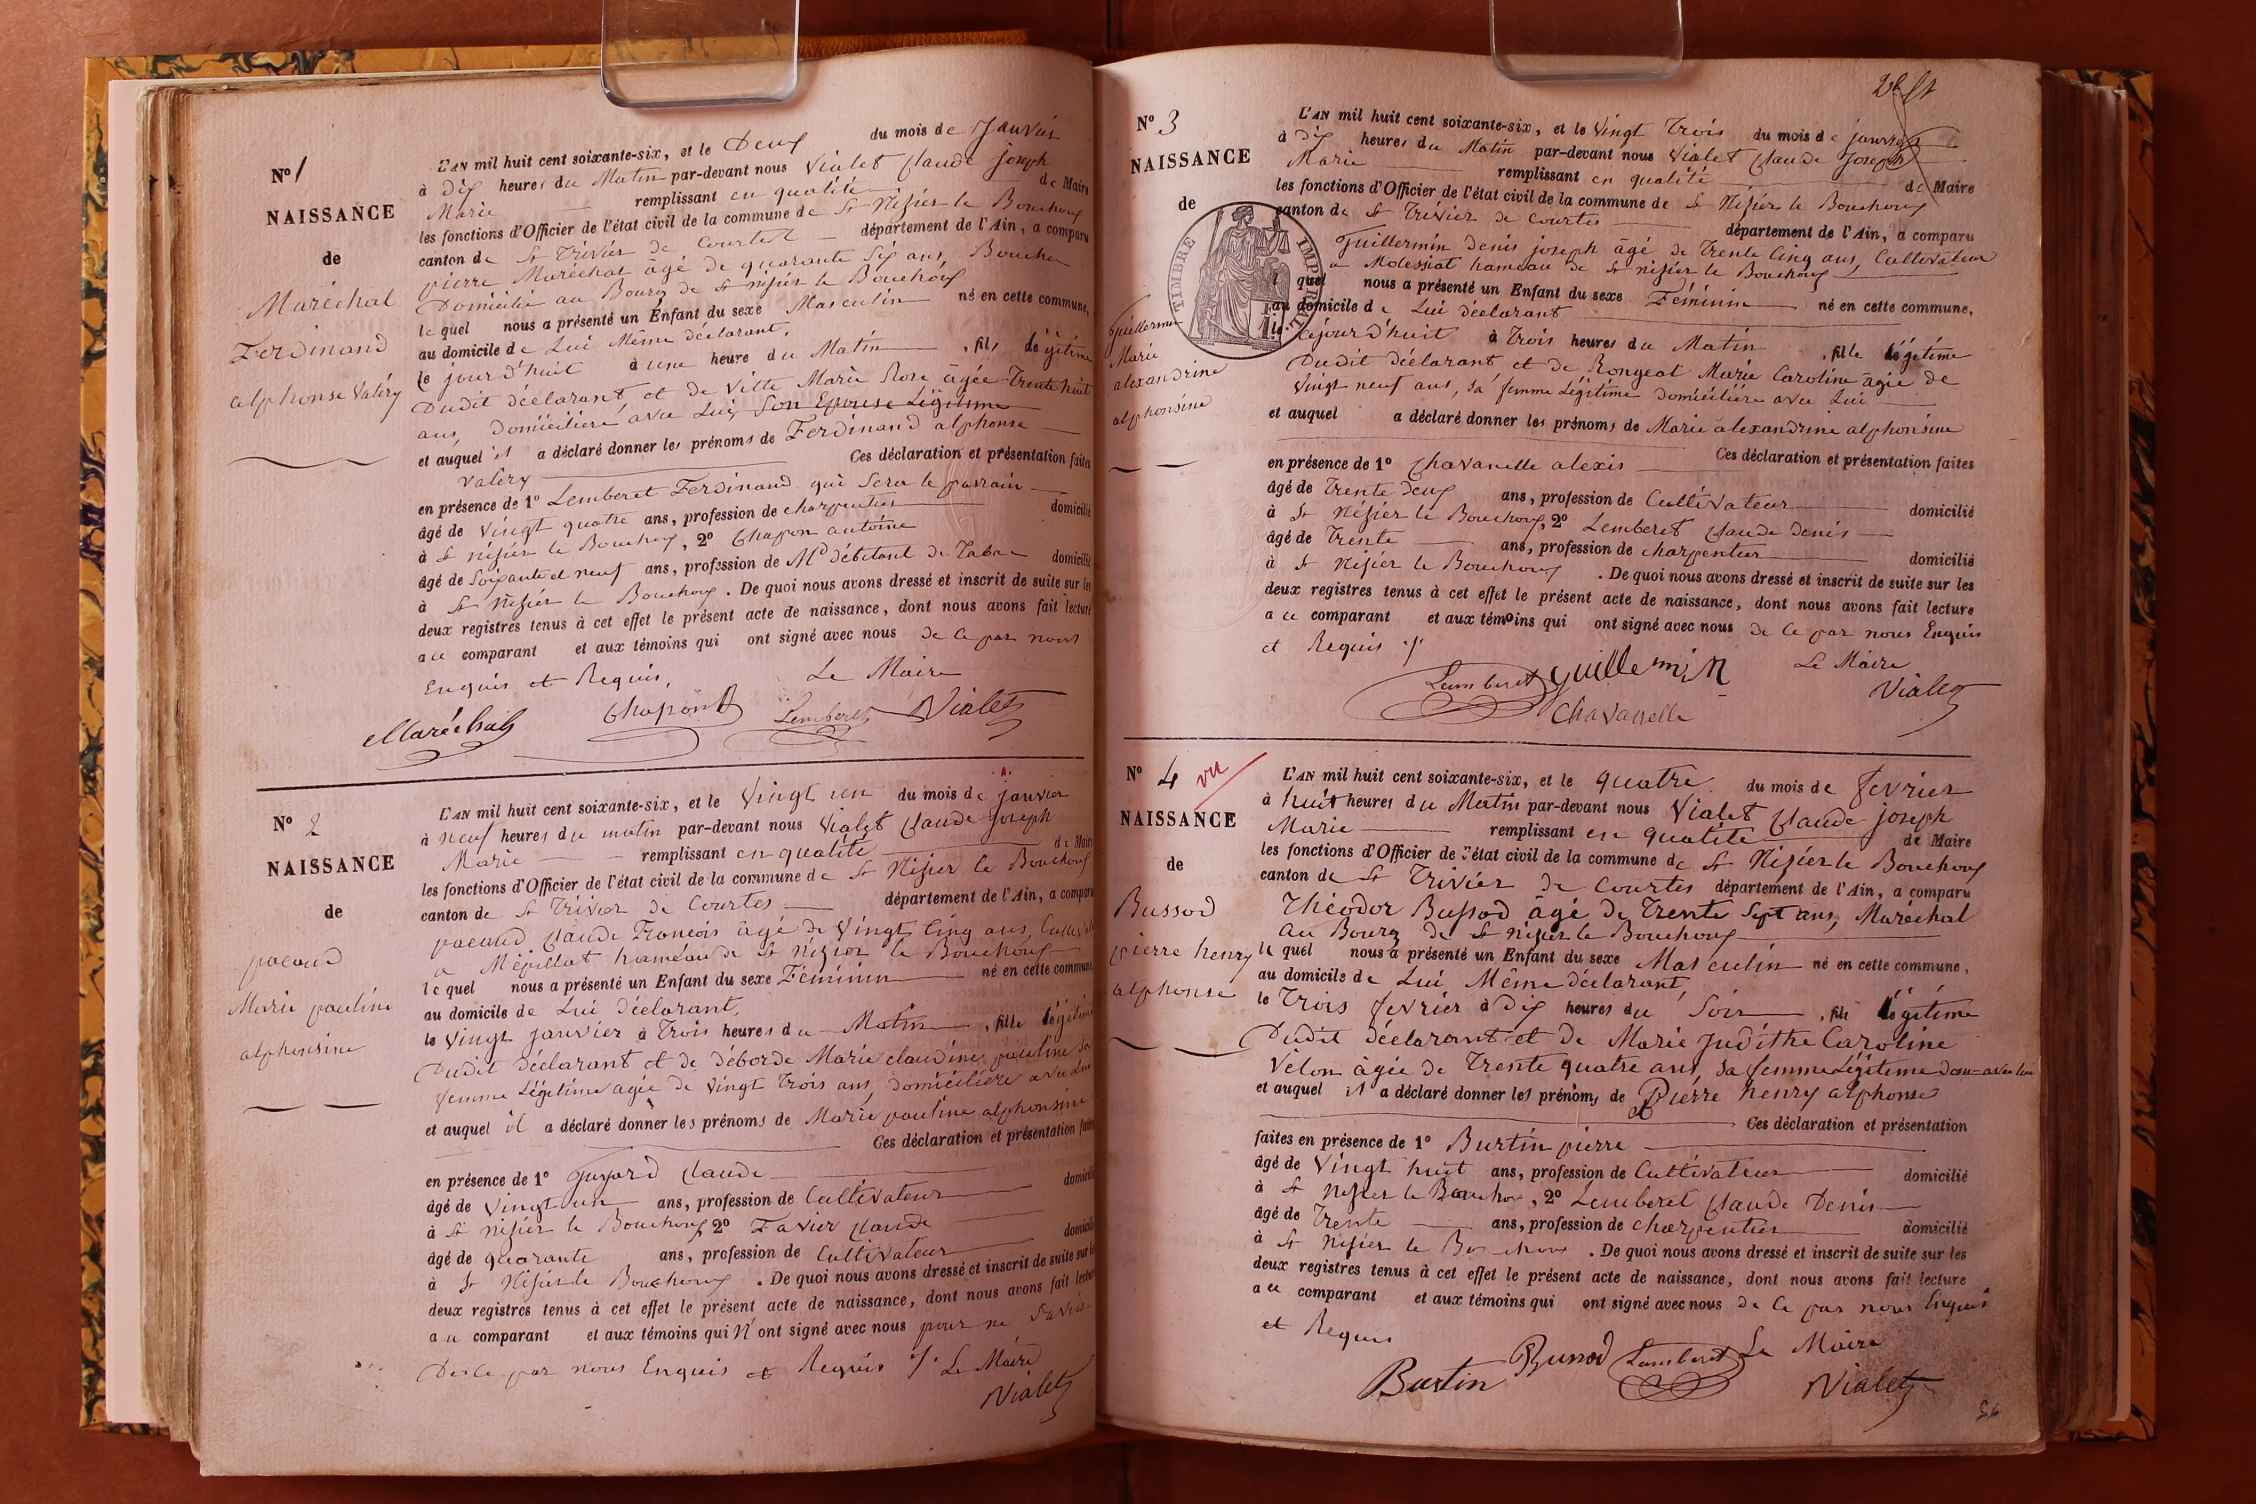 N° 1
NAISSANCE
de
Maréchal
Ferdinand
alphonse Valéry
L'AN mil huit cent soixante-six, et le Deux du mois de Janvier
à Dix heures du Matin par-devant nous Vialet Claude joseph
Marie remplissant en qualité de Maire
les fonctions d'Officier de l'état civil de la commune de St Nizier le Bouchoux
canton de St Trivier de Courtes département de l'Ain, a comparu
pierre Maréchal âgé de quarante Six ans, Boucher
Domicilié au Bourg de St nizier le Bouchoux
lequel nous a présenté un Enfant du sexe Masculin né en cette commune,
au domicile de Lui Même déclarant,
le jour d'huit à une heure du Matin , fils légitime
Dudit déclarant et de Ville Marie Rose âgée Trente huit
ans, Domiciliée avec Lui, Son Epouse Légitime
et auquel il a déclaré donner les prénoms de Ferdinand alphonse
Valéry Ces déclaration et présentation faites
en présence de 1° Lemberet Ferdinand qui Sera le parrain
âgé de Vingt quatre ans, profession de charpentier domicilié
à St nizier le Bouchoux, 2° Chapon antoine
âgé de Soixante et neuf ans, profession de Md débitant de Tabac domicilié
à St Nizier le Bouchoux. De quoi nous avons dressé et inscrit de suite sur les
deux registres tenus à cet effet le présent acte de naissance, dont nous avons fait lecture
au comparant et aux témoins qui ont signé avec nous de ce par nous
Enquis et Requis, Le Maire
Maréchal Chapon Lemberet Vialet
N° 2
NAISSANCE
de
pacaud
Marie pauline
alphonsine
L'AN mil huit cent soixante-six, et le Vingt un du mois de janvier
à neuf heures du matin par-devant nous Vialet Claude Joseph
Marie remplissant en qualité de Maire
les fonctions d'Officier de l'état civil de la commune de St Nizier le Bouchoux
canton de St Trivier de Courtes département de l'Ain, a comparu
pacaud Claude François âgé de Vingt Cinq ans,
a Mépillat hameau de St Nizier le Bouchoux
lequel nous a présenté un Enfant du sexe Féminin né en cette commune
au domicile de Lui déclarant,
le Vingt janvier à Trois heures du Matin , fille légitime
Dudit Déclarant et de Déborde Marie claudine pauline sa
femme Légitime agée de Vingt Trois ans, domiciliée avec Lui
et auquel il a déclaré donner les prénoms de Marie pauline alphonsine
Ces déclaration et présentation faites
en présence de 1° Guyard Claude
âgé de Vingt un ans, profession de Cultivateur domicilié
à St nizier le Bouchoux 2° Favier Claude
âgé de quarante ans, profession de Cultivateur domicilié
à St Nizier le Bouchoux . De quoi nous avons dressé et inscrit de suite sur les
deux registres tenus à cet effet le présent acte de naissance, dont nous avons fait lecture
au comparant et aux témoins qui N'ont signé avec nous pour ne Savoir
De ce par nous Enquis et Requis ./. Le Maire
Vialet
N° 3
NAISSANCE
de
TIMBRE IMPERIAL
Guillermin
Marie
alexandrine
alphonsine
L'AN mil huit cent soixante-six, et le Vingt Trois du mois de janvier
à Dix heures du Matin par-devant nous Vialet Claude Joseph
Marie remplissant en qualité de Maire
les fonctions d'Officier de l'état civil de la commune de St Nizier le Bouchoux
canton de St Trivier de Courtes département de l'Ain, a comparu
Guillermin denis joseph âgé de Trente Cinq ans, Cultivateur
a Molessiat hameau de St nizier le Bouchoux
quel nous a présenté un Enfant du sexe Féminin né en cette commune,
au domicile de Lui déclarant
cejour d'huit à Trois heures du Matin , fille légitime
Dudit déclarant et de Rongeat Marie Caroline agée de
Vingt neuf ans, sa femme Légitime domiciliée avec Lui
et auquel a déclaré donner les prénoms de Marie alexandrine alphonsine
Ces déclaration et présentation faites
en présence de 1° Chavanelle alexis
âgé de Trente deux ans, profession de Cultivateur domicilié
à St Nizier le Bouchoux, 2° Lemberet Claude denis
âgé de Trente ans, profession de charpentier domicilié
à St Nizier le Bouchoux . De quoi nous avons dressé et inscrit de suite sur les
deux registres tenus à cet effet le présent acte de naissance, dont nous avons fait lecture
au comparant et aux témoins qui ont signé avec nous de ce par nous Enquis
et Requis ./. Le Maire
Lemberet guillemin Vialet
Chavanelle
N° 4 vu
NAISSANCE
de
Bussod
pierre henry
alphonse
L'AN mil huit cent soixante-six, et le quatre du mois de fevrier
à huit heures du Matin par-devant nous Vialet Claude joseph
Marie remplissant en qualité de Maire
les fonctions d'Officier de l'état civil de la commune de St Nizier le Bouchoux
canton de St Trivier de Courtes département de l'Ain, a comparu
Théodor Bussod âgé de Trente Sept ans, Maréchal
au Bourg de St nizier le Bouchoux
le quel nous a présenté un Enfant du sexe Masculin né en cette commune,
au domicile de Lui Même déclarant,
le Trois fevrier à Dix heures du Soir , fils légitime
Dudit déclarant et de Marie Judithe Caroline
Velon âgée de Trente quatre ans, sa femme Légitime
et auquel il a déclaré donner les prénoms de Pierre henry alphonse
Ces déclaration et présentation
faites en présence de 1° Burtin pierre
âgé de Vingt huit ans, profession de Cultivateur domicilié
à St Nizier le Bouchoux, 2° Lemberet Claude Denis
âgé de Trente ans, profession de charpentier domicilié
à St Nizier le Bouchoux . De quoi nous avons dressé et inscrit de suite sur les
deux registres tenus à cet effet le présent acte de naissance, dont nous avons fait lecture
au comparant et aux témoins qui ont signé avec nous de ce par nous Enquis
et Requis
Burtin Bussod Lemberet Le Maire
Vialet